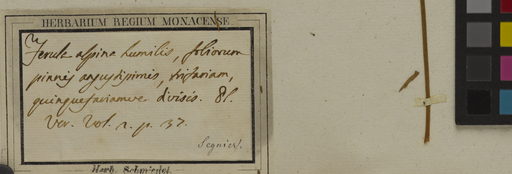 HERBARIUM REGIUM MONACENSE
Ferula alpina humilis, foliorum
pinnis angustissimis, trifariam,
quinquefariamve divisis. Pl.
Ver. Vol. 2. p. 37.
Seguier.
Herb. Schmiedel.